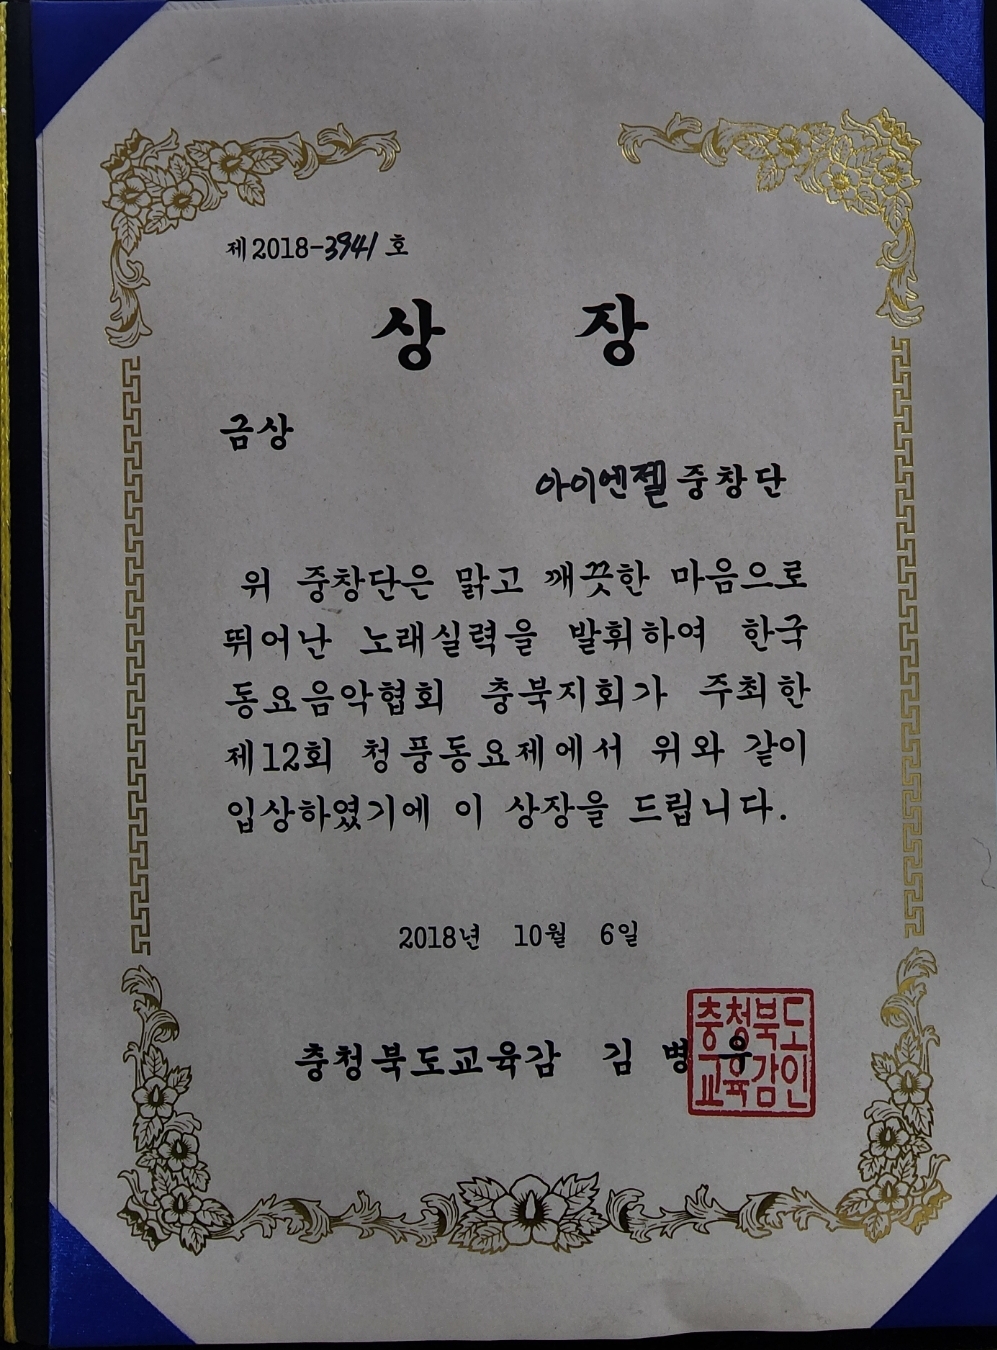 제2018-3941호
상 장
금상
아이엔젤 중창단
위 중창단은 맑고 깨끗한 마음으로
뛰어난 노래실력을 발휘하여 한국
동요음악협회 충북지회가 주최한
제12회 청풍동요제에서 위와 같이
입상하였기에 이 상장을 드립니다.
2018년 10월 6일
충청북도교육감 김 병 우
충청북도
교육감인